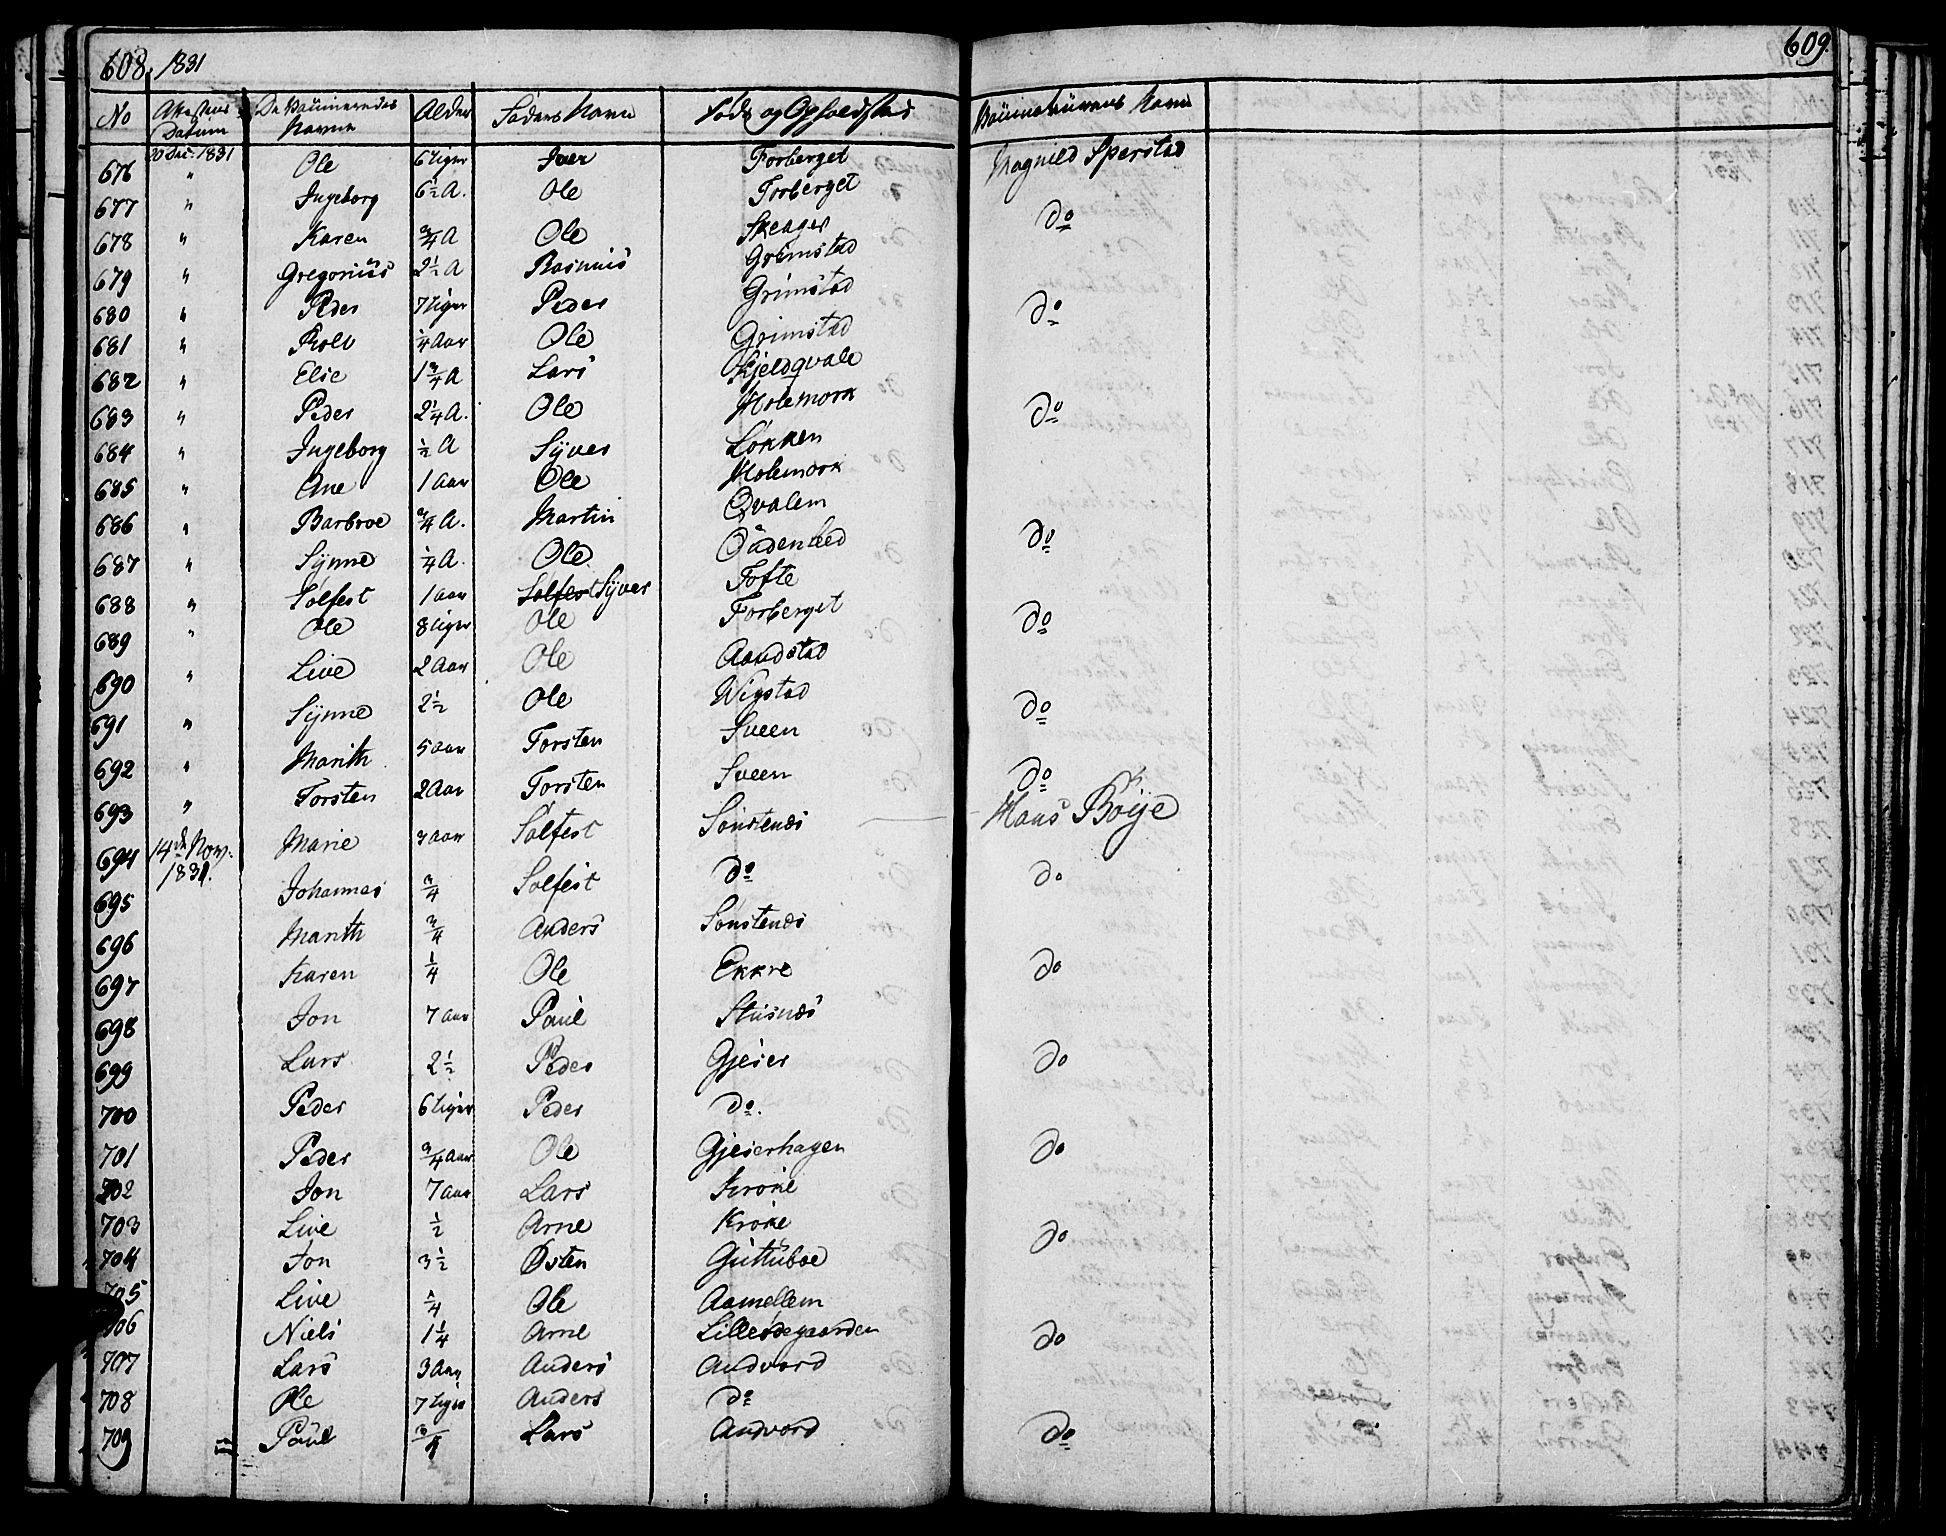 608. 1831
609.
No Attestens Datum De Vaccineredes Navne Alder Faders Navn Føde og Opholdsstad Vaccinateurens Navn
676 20 Dec: 1831 Ole 6 Uger Iver Forberget Magnild Sperstad
677 " Ingeborg 6½ A. Ole Forberget
678 " Karen ¾ A Ole Skeager do
679 " Gregorius 2½ A Rasmus Grimstad
680 " Peder 7 Uger Peder Grimstad do
681 " Rolv ¼ Aar Ole Grimstad
682 " Elie 1¾ A Lars Kjeldqvale
683 " Peder 2¼ A. Ole Holemork do
684 " Ingeborg ½ A Syver Løkken
685 " Ane 1 Aar Ole Holemork
686 " Barbroe ¾ A. Martin Qvalem do
687 " Synne ¼ A. Ole
688 " Solfest 1 Aar Solfest Syver Tofte
689 " Ole 8 Uger Ole Forberget do
690 " Live 2 Aar Ole Aandstad
691 " Synne 2½ Ole Wigstad do
692 " Marith 5 Aar Torsten Sveen
693 " Torsten 2 Aar Torsten Sveen do
694 14de Nov: 1831. Marie 3 Aar Solfest Sønstenes Hans Bøye
695 Johannes ¾ Solfest do do
696 Marith ¾ Anders Sønstenes
697 Karen ¼ Ole Ekkre do
698 Jon 7 Aar Paul Stusnes
699 Lars 2½ Peder Gjeier do
700 Peder 6 Uger Peder do.
701 Peder ¾ Aar Ole Gjeierhagen do
702 Jon 7 Aar Lars Krøke
703 Live ½ Arne Krøke do
704 Jon 3½ Østen Guttuboe
705 Live ¼ Ole Aamellem
706 Niels 1¼ Arne Lilleødegaarden do
707 Lars 3 Aar Anders Andvord
708 Ole 7 Uger Anders do
709 Paul ¾ Lars Andvord do